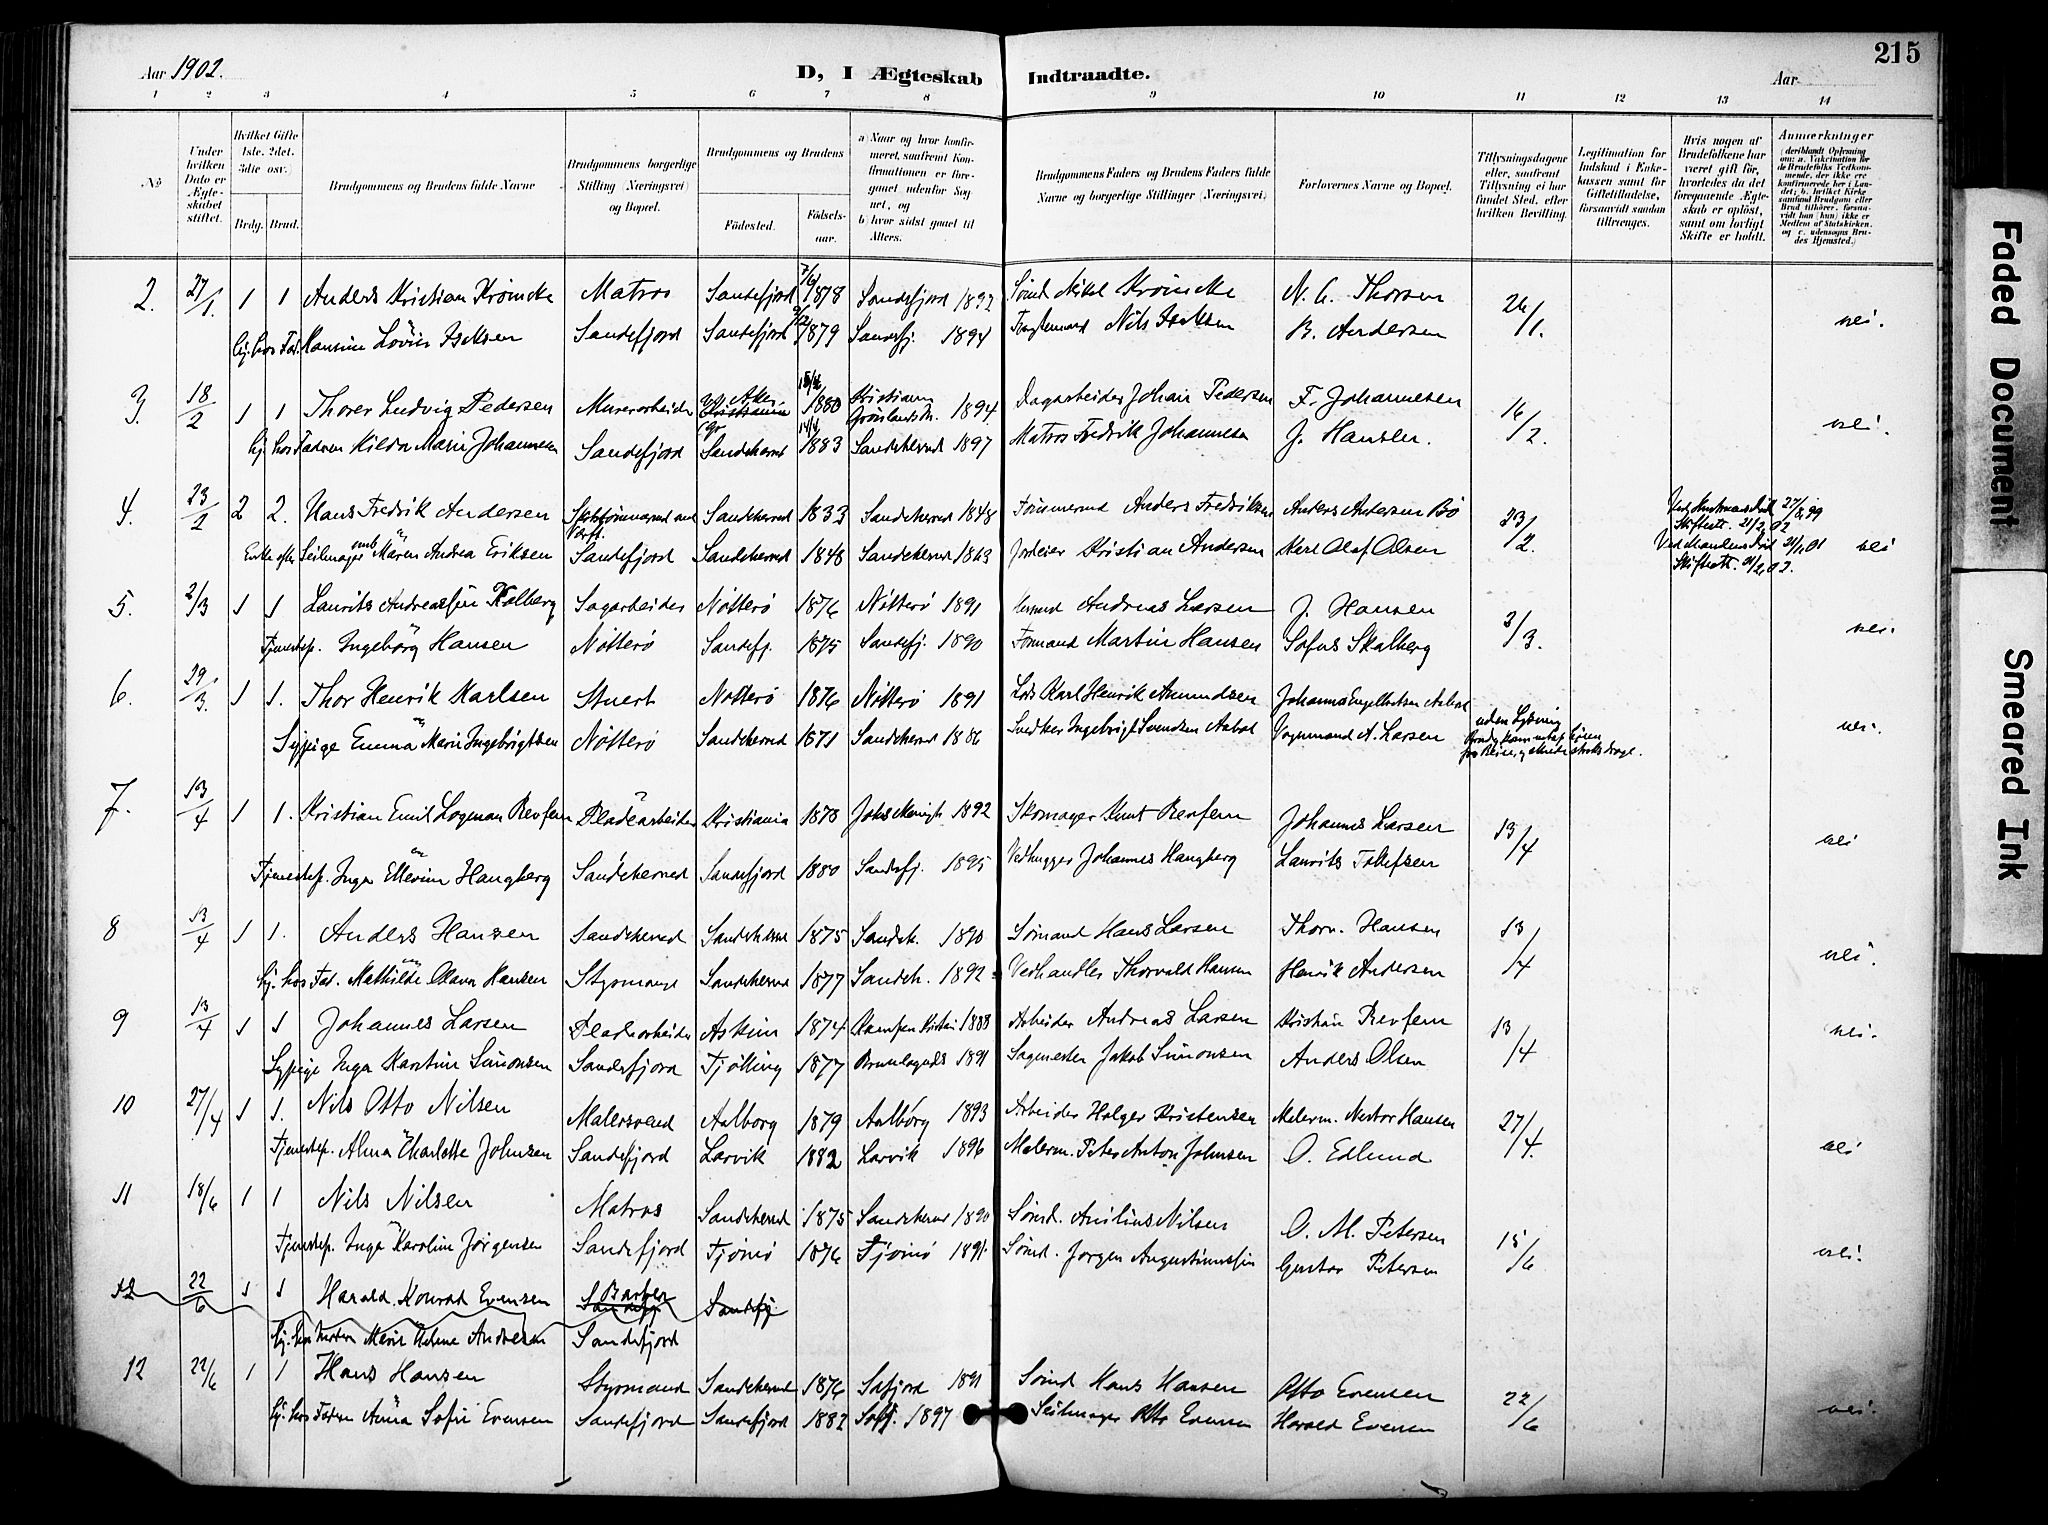 215
Aar 1902.
D, I Ægteskab Indtraadte.
Aar
1 2 3 4 5 6 7 8 9 10 11 12 13 14
No
Under hvilken Dato er Ægteskabet stiftet.
Hvilket Gifte 1ste. 2det. 3die osv.)
Brdg. Brud.
Brudgommens og Brudens fulde Navne
Brudgommens borgerlige Stilling (Næringsvei) og Bopæl.
Brudgommens og Brudens
Fødested.
Fødselsaar.
a) Naar og hvor konfirmeret, saafremt Konfirmationen er foregaaet udenfor Sognet, og
b) hvor sidst gaaet til Alters.
Brudgommens Faders og Brudens Faders fulde Navne og borgerlige Stillinger (Næringsvei)
Forlovernes Navne og Bopæl.
Tillysningsdagene eller, saafremt Tillysning ei har fundet Sted, efter hvilken Bevilling.
Legitimation for Indskud i Enkekassen samt for Giftetilladelse, forsaavidt saadan tiltrænges.
Hvis nogen af Brudefolkene har været gift før, hvorledes da det foregaaende Ægteskab er opløst, samt om lovligt Skifte er holdt.
Anmærkninger
2. 27/1 1 1 Anders Kristian Krömcke Matros Sandefjord 1878 Sandefjord 1892 Sömd Mikal Krömcke N. C. Thorsen 26/1. nei.
hj. hos Fad. Hansine Lovise Isaksen Sandefjord Sandefjord 1879 Sandefj. 1894 Nils Isaksen B. Andersen
3. 18/2 1 1 Thorer Ludvig Pedersen Murerarbeider V. Aker Kristiania 1880 Kristiania Grönlands 1894 Dagarbeider Johan Pedersen F. Johannesen 16/2. nei.
hj. hos Faderen Hilda Marie Johannesen Sandefjord Sandeherred 1883 Sandeherred 1897 Matros Fredrik Johannesen J. Hansen.
4. 23/2 2 2. Hans Fredrik Andersen Sandeherred 1833 Sandeherred 1848 Tömmermd Anders Fredriksen Anders Andersen Bö 23/2. nei
Enke efter Seilmager Maren Andrea Eriksen Sandefjord Sandeherred 1848 Sandeherred 1863 Jordeier Kristian Andersen Karl Olaf Olsen
5. 2/3 1 1 Laurits Andreassen Kalberg Sagarbeider Nötterö 1876 Nötterö 1891 Andreas Larsen J. Hansen 2/3. nei.
Tjenestep. Ingeborg Hansen Nötterö Sandefj. 1875 Sandefj. 1890 Formand Martin Hansen Sofus Skalberg
6. 29/3. 1 1. Thor Henrik Karlsen Stuert Nötterö 1876 Nötterö 1891 Lods Karl Henrik Amundsen Johannes Engelbretsen uden Lysning nei.
Sypige Emma Marie Ingebrigtsen Nötterö Sandeherred 1871 Sandeherred 1886 Snedker Ingebrigt Svendsen Vognmand A. Larsen
7. 13/4 1 1. Kristian Emil Logman Revfem Pladearbeider Kristiania 1878 Jakobs Menigh. 1892 Skomager Knut Revfem Johannes Larsen 13/4 nei
Tjenestep. Inga Ellevine Haugberg Sandeherred Sandefjord 1880 Sandefj. 1895 Vedhugger Johannes Haugberg Laurits Tollefsen
8 13/4 1 1. Anders Hansen Sandeherred Sandeherred 1875 Sandeh. 1890 Sömand Hans Larsen Thorv. Hansen 13/4 nei.
hj. hos Fad. Mathilde Olava Hansen Styrmand Sandeherred 1877 Sandeh. 1892 Vedhandler Thorvald Hansen Henrik Andersen
9 13/4 1 1 Johannes Larsen Pladearbeider Askim 1874 Kampen Kristia 1888 Arbeider Andreas Larsen Kristian Revfem 13/4 nei.
Sypige Inga Karstine Simonsen Sandefjord Tjölling 1877 Brunlagnæs 1891 Sagmester Jakob Simonsen Anders Olsen
10 27/4 1 1. Nils Otto Nilsen Malersvend Aalborg 1879 Aalborg 1893 Arbeider Holger Kristensen Malerm. Nestor Hansen 27/4. nei
Tjenestep. Alma Charlotte Johnsen Sandefjord Larvik 1882 Larvik 1896 Malerm. Peter Anton Johnsen O. Edlund
11 18/6 1 1 Nils Nilsen Matros Sandeherred 1875 Sandeherred 1890 Sömd. Anilius Nilsen O. M. Petersen 15/6 nei.
Tjenestep. Inga Karoline Jörgensen Sandefjord Tjömö 1876 Tjömö 1891. Sömd. Jörgen Augustinussen Gustav Petersen
12 22/6 1 1 Harald Konrad Evensen Barber Sandefj.
hj. hos Moderen Marie Helene Andresen Sandefjord
12 22/6 1 1 Hans Hansen Styrmand Sandeherred 1876 Safjord 1891 Sömd Hans Hansen Otto Evensen 22/6 nei.
hj. hos Faderen Anna Sofie Evensen Sandefjord Sandefjord 1882 1897 Seilmager Otto Evensen Harald Evensen
Faded Document
Smeared Ink